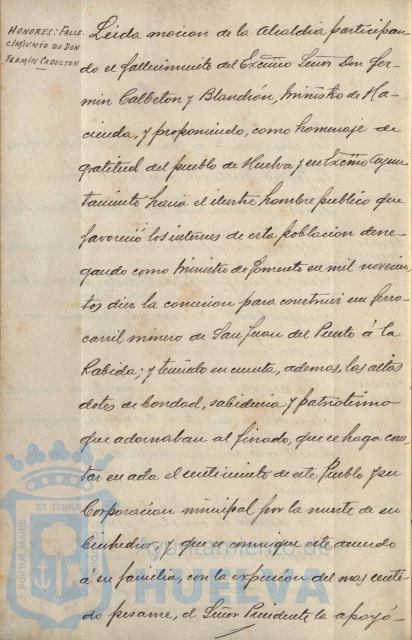 HONORES: FALLE-
CIMIENTO DE DON
FERMIN CALBETON
Leida mocion de la Alcaldia participan-
do el fallecimiento del Excmo Señor Don Fer-
min Calbeton y Blanchón, Ministro de Ha-
cienda, y proponiendo, como homenaje de
gratitud del pueblo de Huelva y su Excmo Ayun-
tamiento hacia el ilustre hombre publico que
favoreció los intereses de esta poblacion dene-
gando como Ministro de Fomento en mil novecien-
tos diez la concesion para construir un ferro-
carril minero de San Juan del Puerto á la
Rabida; y teniendo en cuenta, ademas, las altas
dotes de bondad, sabiduria y patriotismo
que adornaban al finado, que se haga cons-
tar en acta el sentimiento de este Pueblo y su
Corporacion municipal por la muerte de su
bienhechor, y que se comunique este acuerdo
á su familia, con la expresion del mas senti-
do pesame, el Señor Presidente la apoyó-
PORTUS MARIS ET TERRAE
Ayuntamiento de
HUELVA